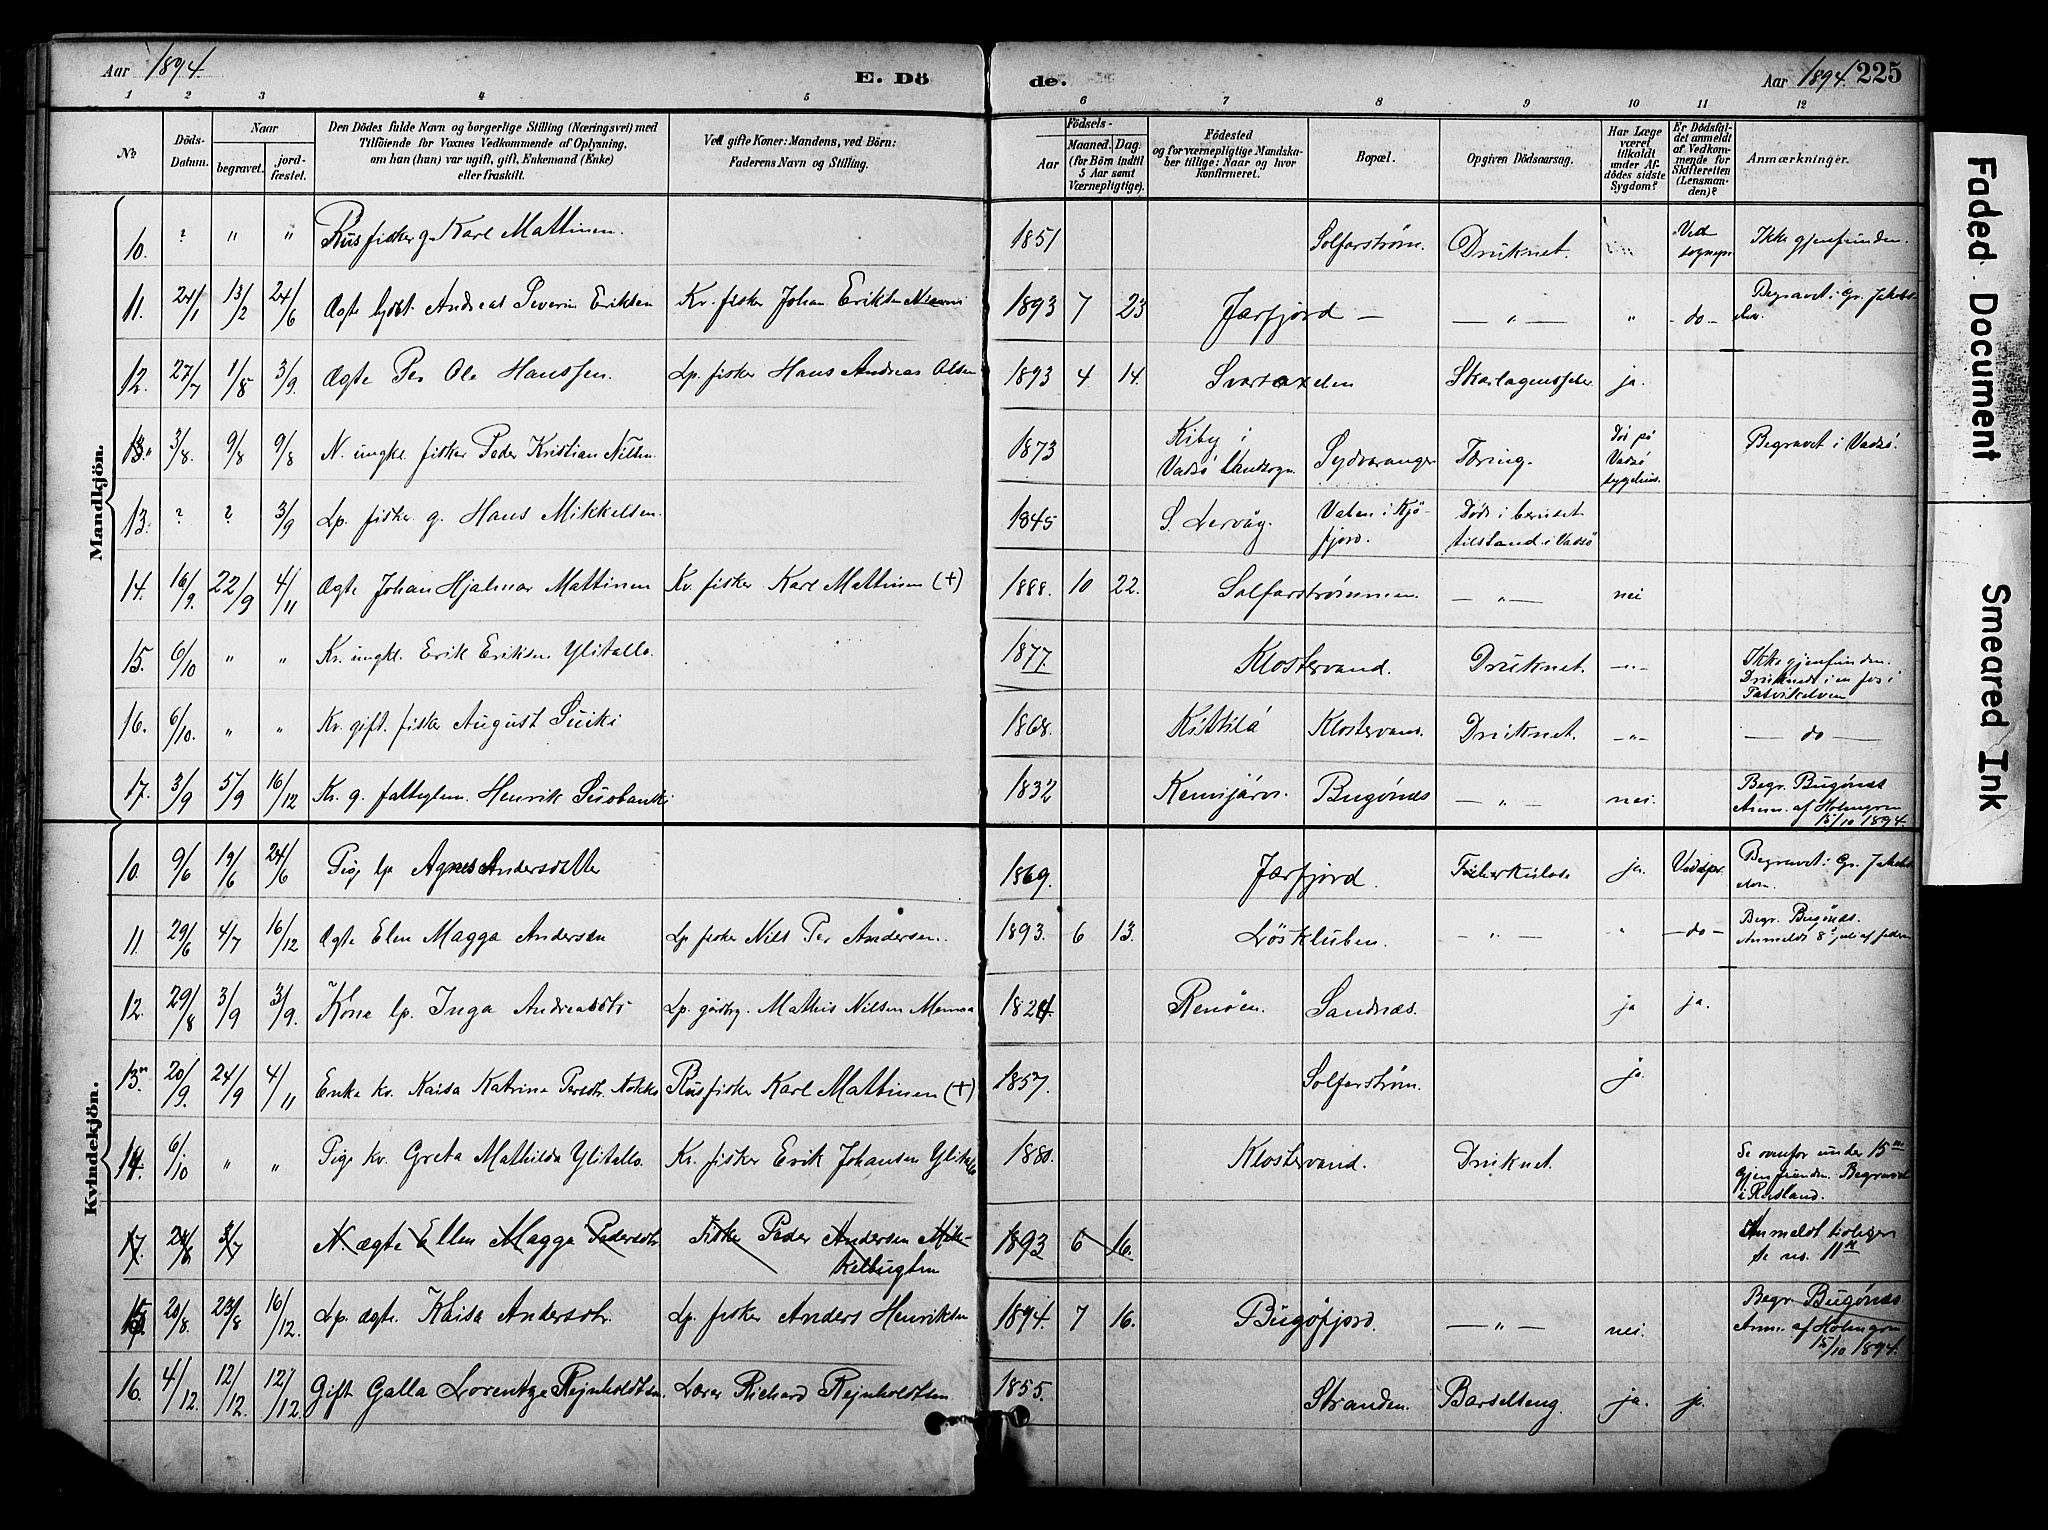 Aar 1894. E. Dö de. Aar 1894. 225
1 2 3 4 5 6 7 8 9 10 11 12
No
Döds-Datum.
Naar
begravet.
jord-fæstet.
Den Dödes fulde Navn og borgerlige Stilling (Næringsvei) med
Tilföiende for Voxnes Vedkommende af Oplysning,
om han (hun) var ugift, gift, Enkemand (Enke)
eller fraskilt.
Ved gifte Koner: Mandens, ved Börn:
Faderens Navn og Stilling.
Födsels-
Aar
Maaned. Dag.
(for Börn indtil
5 Aar samt
Værnepligtige).
Födested
og for værnepligtige Mandska-
ber tillige: Naar og hvor
konfirmeret.
Bopæl.
Opgiven Dödsaarsag.
Har Læge
været
tilkaldt
under Af-
dödes sidste
Sygdom?
Er Dödsfal-
det anmeldt
af Vedkom-
mende for
Skifteretten
(Lensman-
den)?
Anmærkninger.
Mandkjön.
10. ? " " Rus fisker g. Karl Mattinen. 1851 Solfarstrøm. Druknet. Ved sognepr Ikke gjenfunden.
11. 24/1 13/2 24/6 Ægte Andreas Severin Eriksen Kv. fisker Johan Eriksen Niemi 1893 7 23 Jarfjord — — " — " - do - Begravet i Gr. Jakobs-elv.
12. 27/7 1/8 3/9 Ægte Per Ole Hanssen. Lp. fisker Hans Andreas Olsen 1893 4 14. Svartaxelen Skarlagensfeber ja.
13. 3/8. 9/8 9/8 N. ungkl. fisker Peder Kristian Nilsen. 1873 Kiby i Vadsø Landsogn. Sydvaranger Tæring. Død på Vadsø sygehus. Begravet i Vadsø.
13. ? ? 3/9 Lp. fisker g. Hans Mikkelsen. 1845 S. Lervåg. i Kjø-fjord. Døde i beruset tilstand i Vadsø
14. 16/9. 22/9 4/11 Ægte Johan Hjalmar Mattinen Kv. fisker Karl Mattinen (+) 1888. 10 22. Solfarstrømmen — " — nei
15. 6/10 " " Kv. ungkl. Erik Eriksen Ylitallo. 1877. Klostervand. Druknet. — " — Ikke gjenfunden. Druknede i en fos i Tatvikelven
16. 6/10. " " Kv. gift. fisker August Suiki 1868. Kittilä Klostervand. Druknet. — " — — do —
17. 3/9 5/9 16/12 Kv. g. Henrik Suobanki 1832 Kemijärv. Bugønæs — " — nei. Begr. Bugønæs Anm. af Holmgren 15/10 1894.
Kvindekjön.
10. 9/6 19/6 24/6 Pige lp Agnes Andersdatter 1869. Jarfjord. Tuberkulose ja. Ved spr. Begravet i Gr. Jakobselven.
11. 29/6 4/7 16/12 Ægte Elen Magga Andersen Lp fisker Nils Per Andersen. 1893. 6 13. Løskluben. — " — " — do — Begr. Bugønæs. Anmeldt 8 juli af faderen
12. 29/8 3/9 3/9. Kone lp. Inga Andreasdtr Lp. gårdbr. Mathis Nilsen Menna 1824. Renøen. Sandnæs. ja ja.
13. 20/9. 24/9 4/11 Enke kv. Kaisa Katrina Persdtr. Nokke Rus fisker Karl Mattinen (+) 1857. Solfarstrøm. ja.
14. 6/10 " " Pige kv. Greta Mathilda Ylitallo. Kv. fisker Erik Johansen Ylitallo 1880. Klostervand. Druknet. Se ovenfor under 15 Gjenfunden. Begravet i Rusland.
17. 29/6 3/7 N. ægte Ellen Magga Pedersdtr Fisker Peder Andersen Mik-kelbugten 1893 6 16. Anmeldt tidligere Se no. 11
15. 20/8. 23/8 16/12. Lp. ægte. Kaisa Andersdtr. Lp. fisker Anders Henriksen 1894. 7 16. Bugøfjord. — " — nei. Begr. Bugønæs Anm. af Holmgren 15/10 1894.
16. 4/12. 12/12. 12/12. Gift Galla Lorentze Rejnholdtsen. Lærer Richard Rejnholdtsen. 1855. Stranden. Barselseng. ja. ja.
Faded Document
Smeared Ink